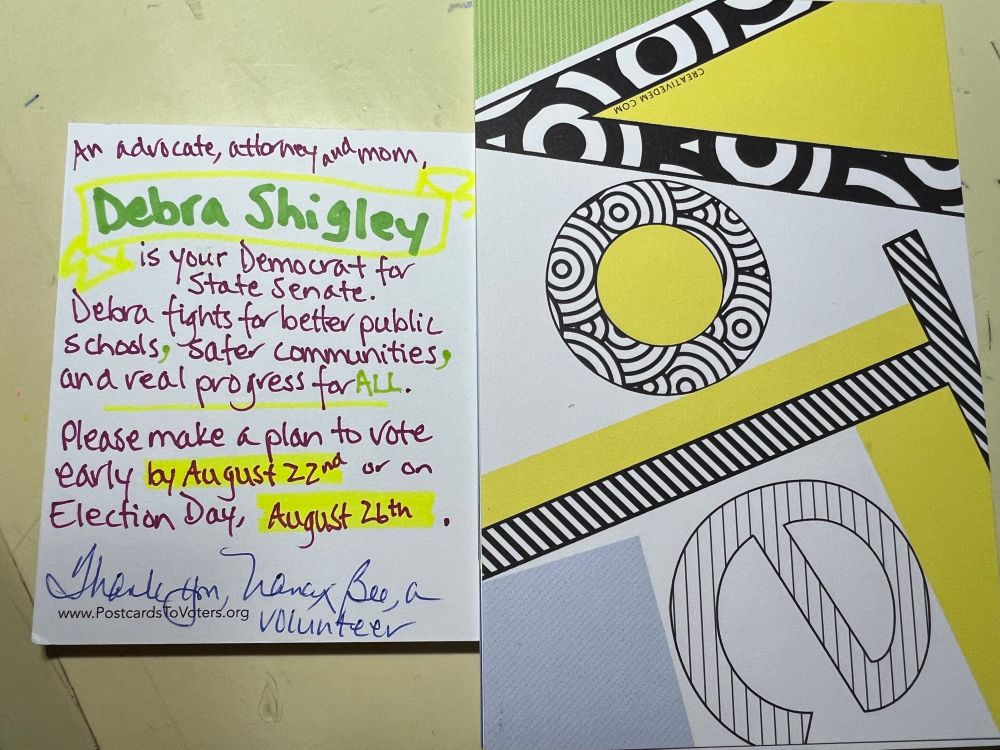 An advocate, attorney and mom,
Debra Shigley
is your Democrat for
State Senate.
Debra fights for better public
schools, safer communities,
and real progress for ALL.
Please make a plan to vote
early by August 22nd or on
Election Day, August 26th.
Thank you, Nancy Bee, a
volunteer
www.PostcardsToVoters.org
CREATIVEDEM.COM
V
o
t
e